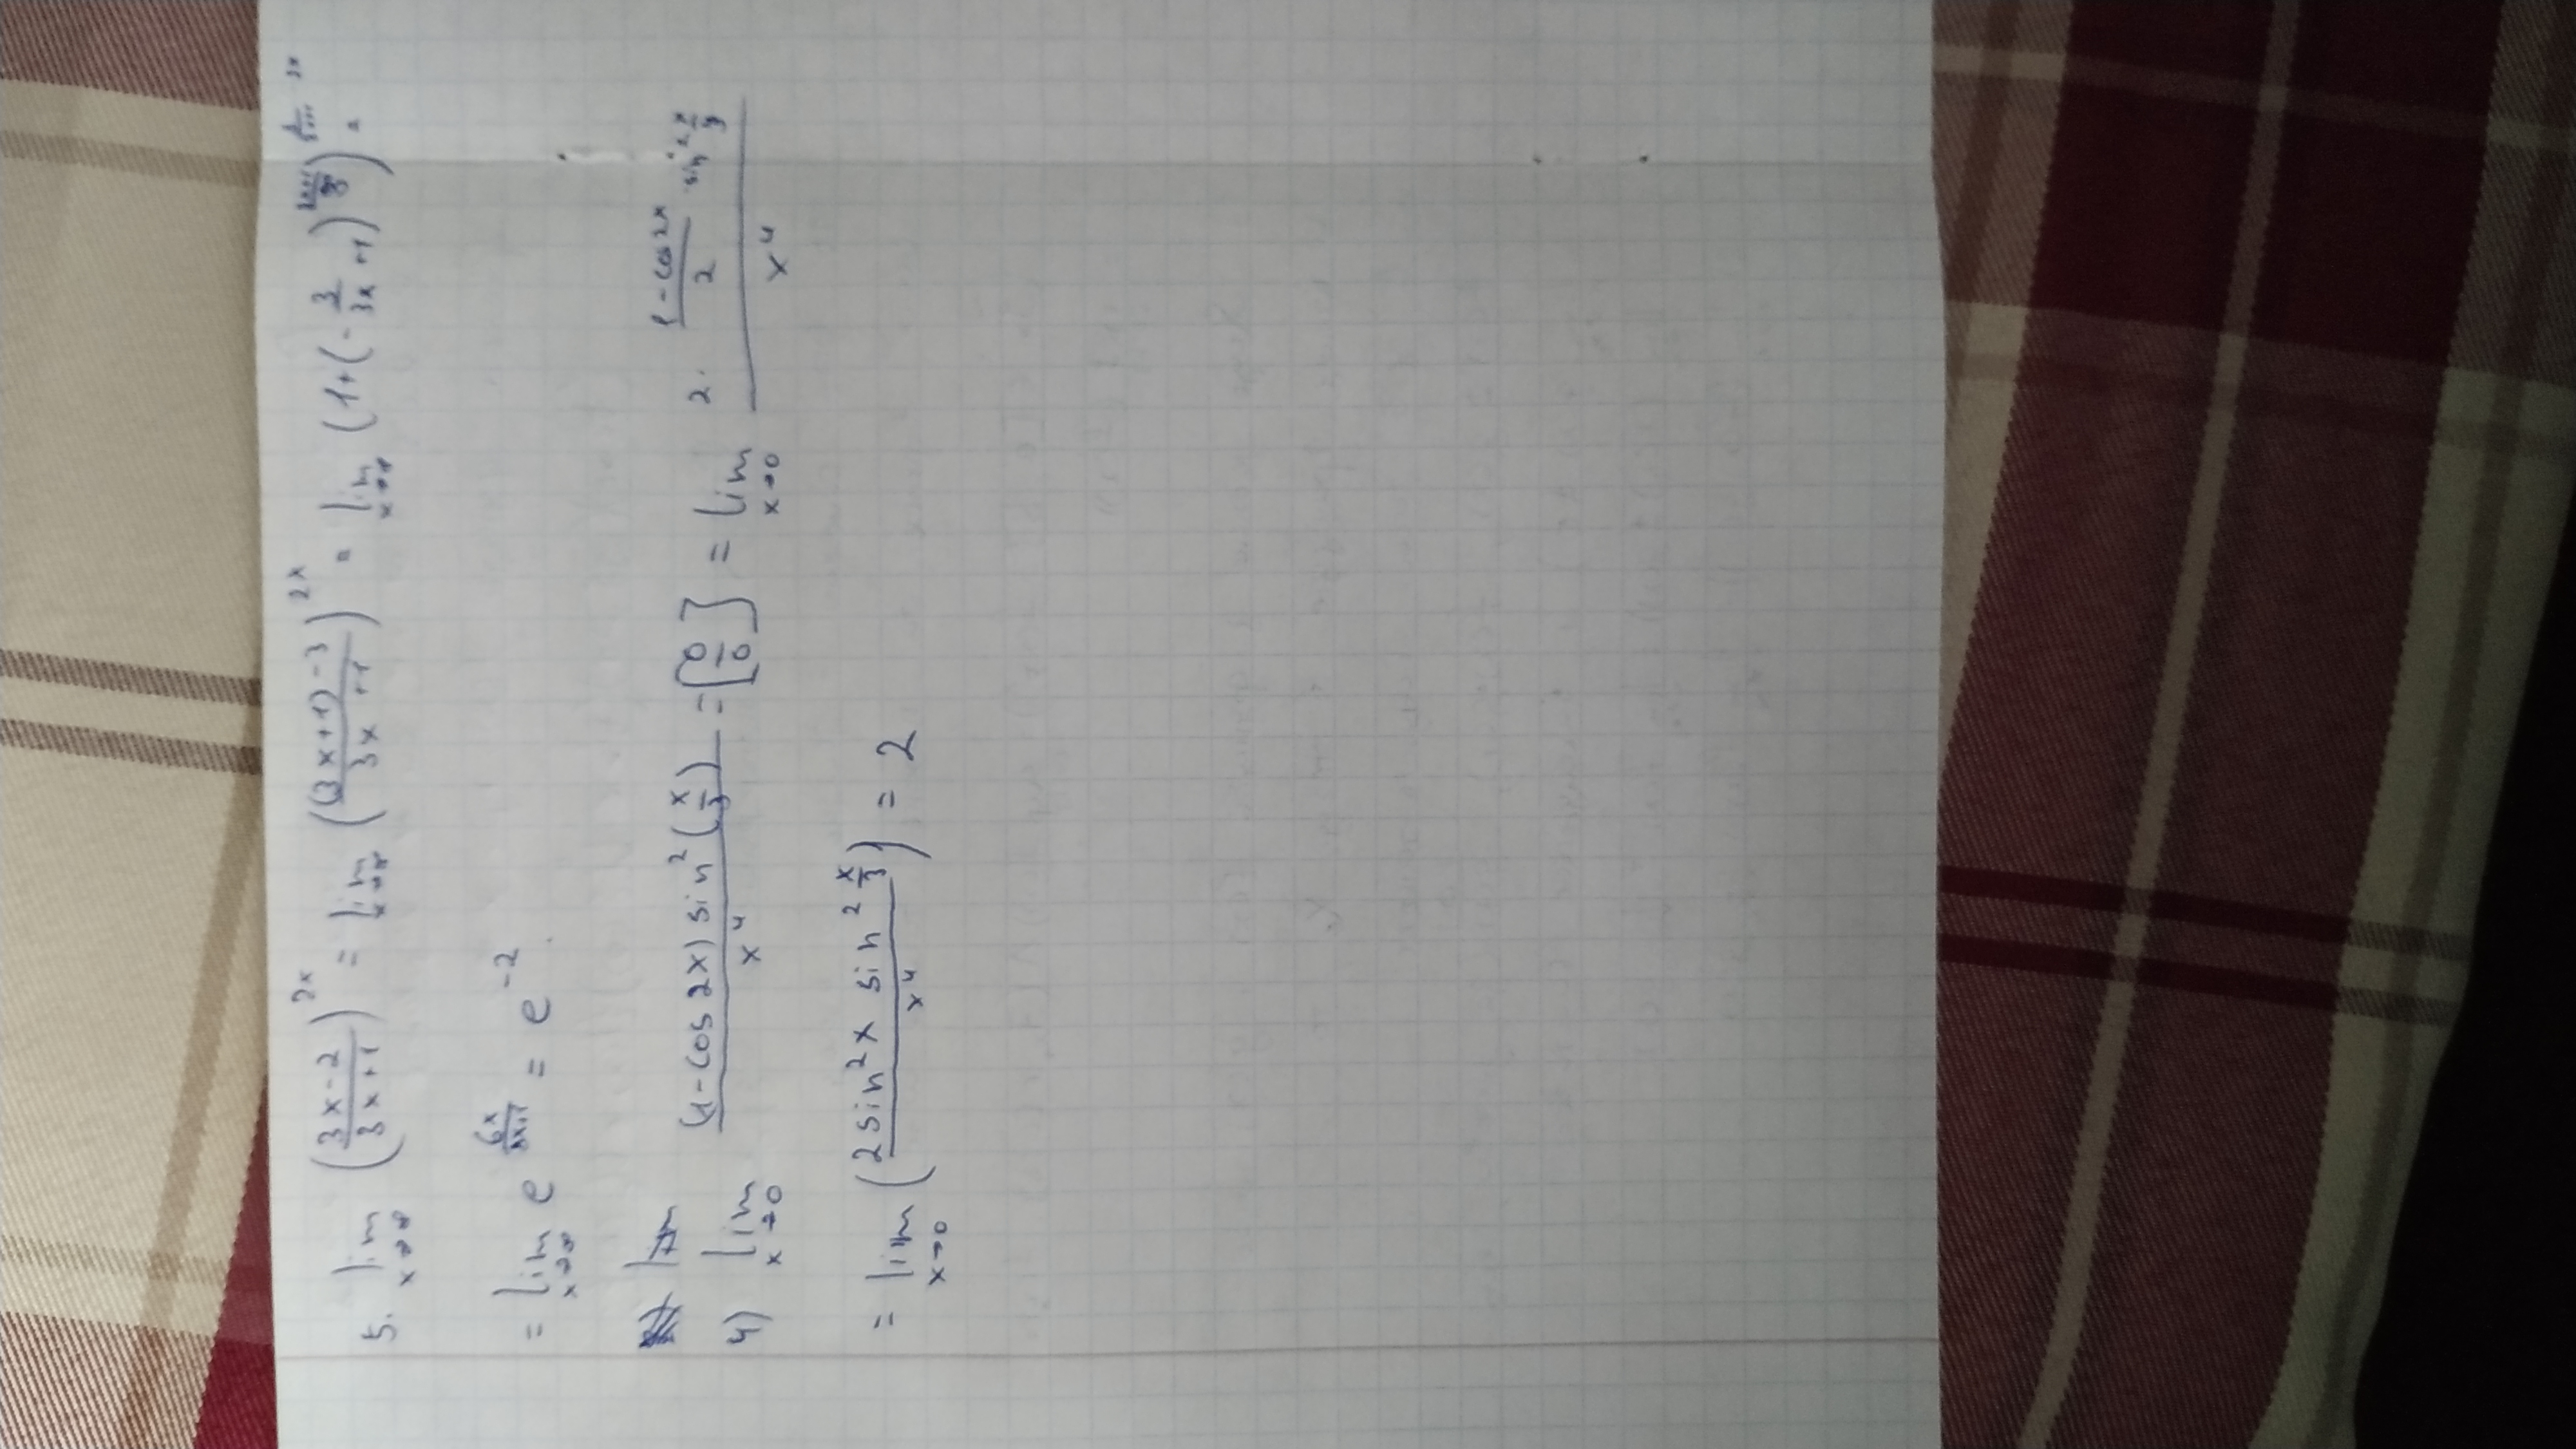 5. lim x→∞ ((3x-2)/(3x+1))^2x = lim x→∞ (((3x+1)-3)/(3x+1))^2x = lim x→∞ (1+(-3/3x+1)) =
= lim x→∞ e^(6x/3x+1) = e^-2
4) lim x→0 ((1-cos2x)sin²(x/3))/x⁴ = [0/0] = lim x→0 (2·(1-cos2x)/2·sin²x/3)/x⁴
= lim x→0 ((2sin²x sin²x/3)/x⁴) = 2